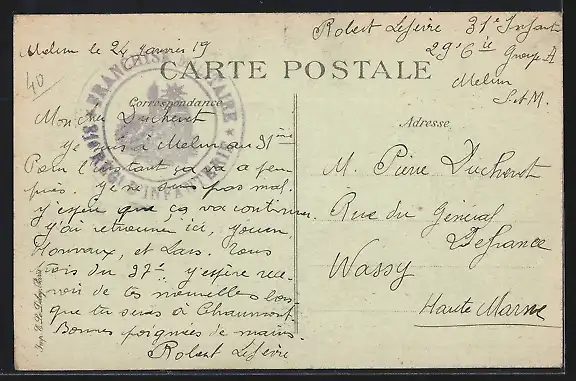 Melun le 24 janvier 19
Robert Lefèvre 31e Infant
29e Cie Groupe A
Melun
S-et-M.
40
CARTE POSTALE
Correspondance
Adresse
FRANCHISE MILITAIRE
RÉGIMENT D'INFANTERIE
Mon cher Duchenet
Je suis à Melun au 31ème
Pour l'instant ça va à peu
près. Je ne suis pas mal.
j'espère que ça va continuer.
j'ai retrouvé ici,
et Lars. Tous
trois du 37e. j'espère rece-
voir de tes nouvelles lors
que tu seras à Chaumont.
Bonnes poignées de mains.
Robert Lefèvre
M. Pierre Duchenet
Rue du Général
Defrance
Wassy
Haute Marne